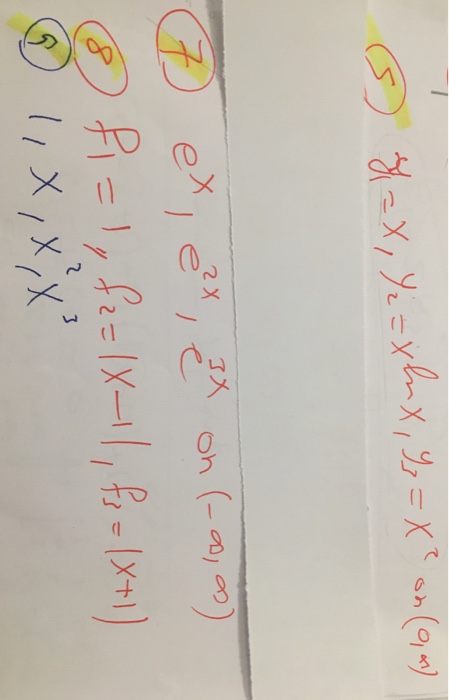 5 y₁ = x, y₂ = x ln x, y₃ = x² on (0,∞)
7 eˣ, e²ˣ, e³ˣ on (-∞,∞)
8 f₁ = 1, f₂ = |x-1|, f₃ = |x+1|
1, x, x², x³